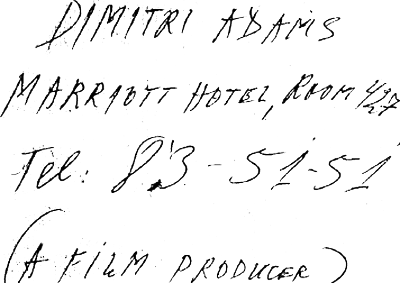 DIMITRI ADAMS
MARRIOTT HOTEL, ROOM 427
Tel: 83-51-51
(A FILM PRODUCER)